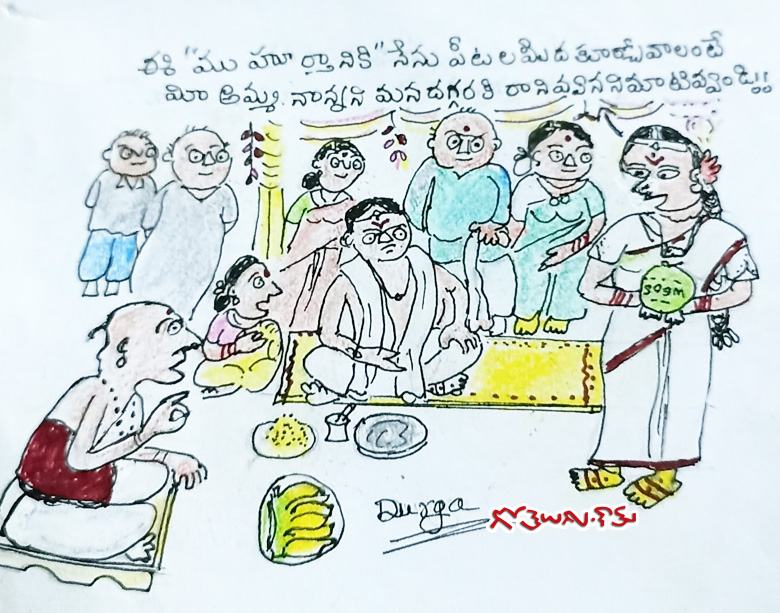 ఈ "ము హూ ర్తానికి" నేను పీటలమీద కూర్చోవాలంటే
మీ అమ్మ నాన్నని మనదగ్గరకి రానివ్వననిమాటివ్వండి!!
Durga
గోతెలుగు.కామ్